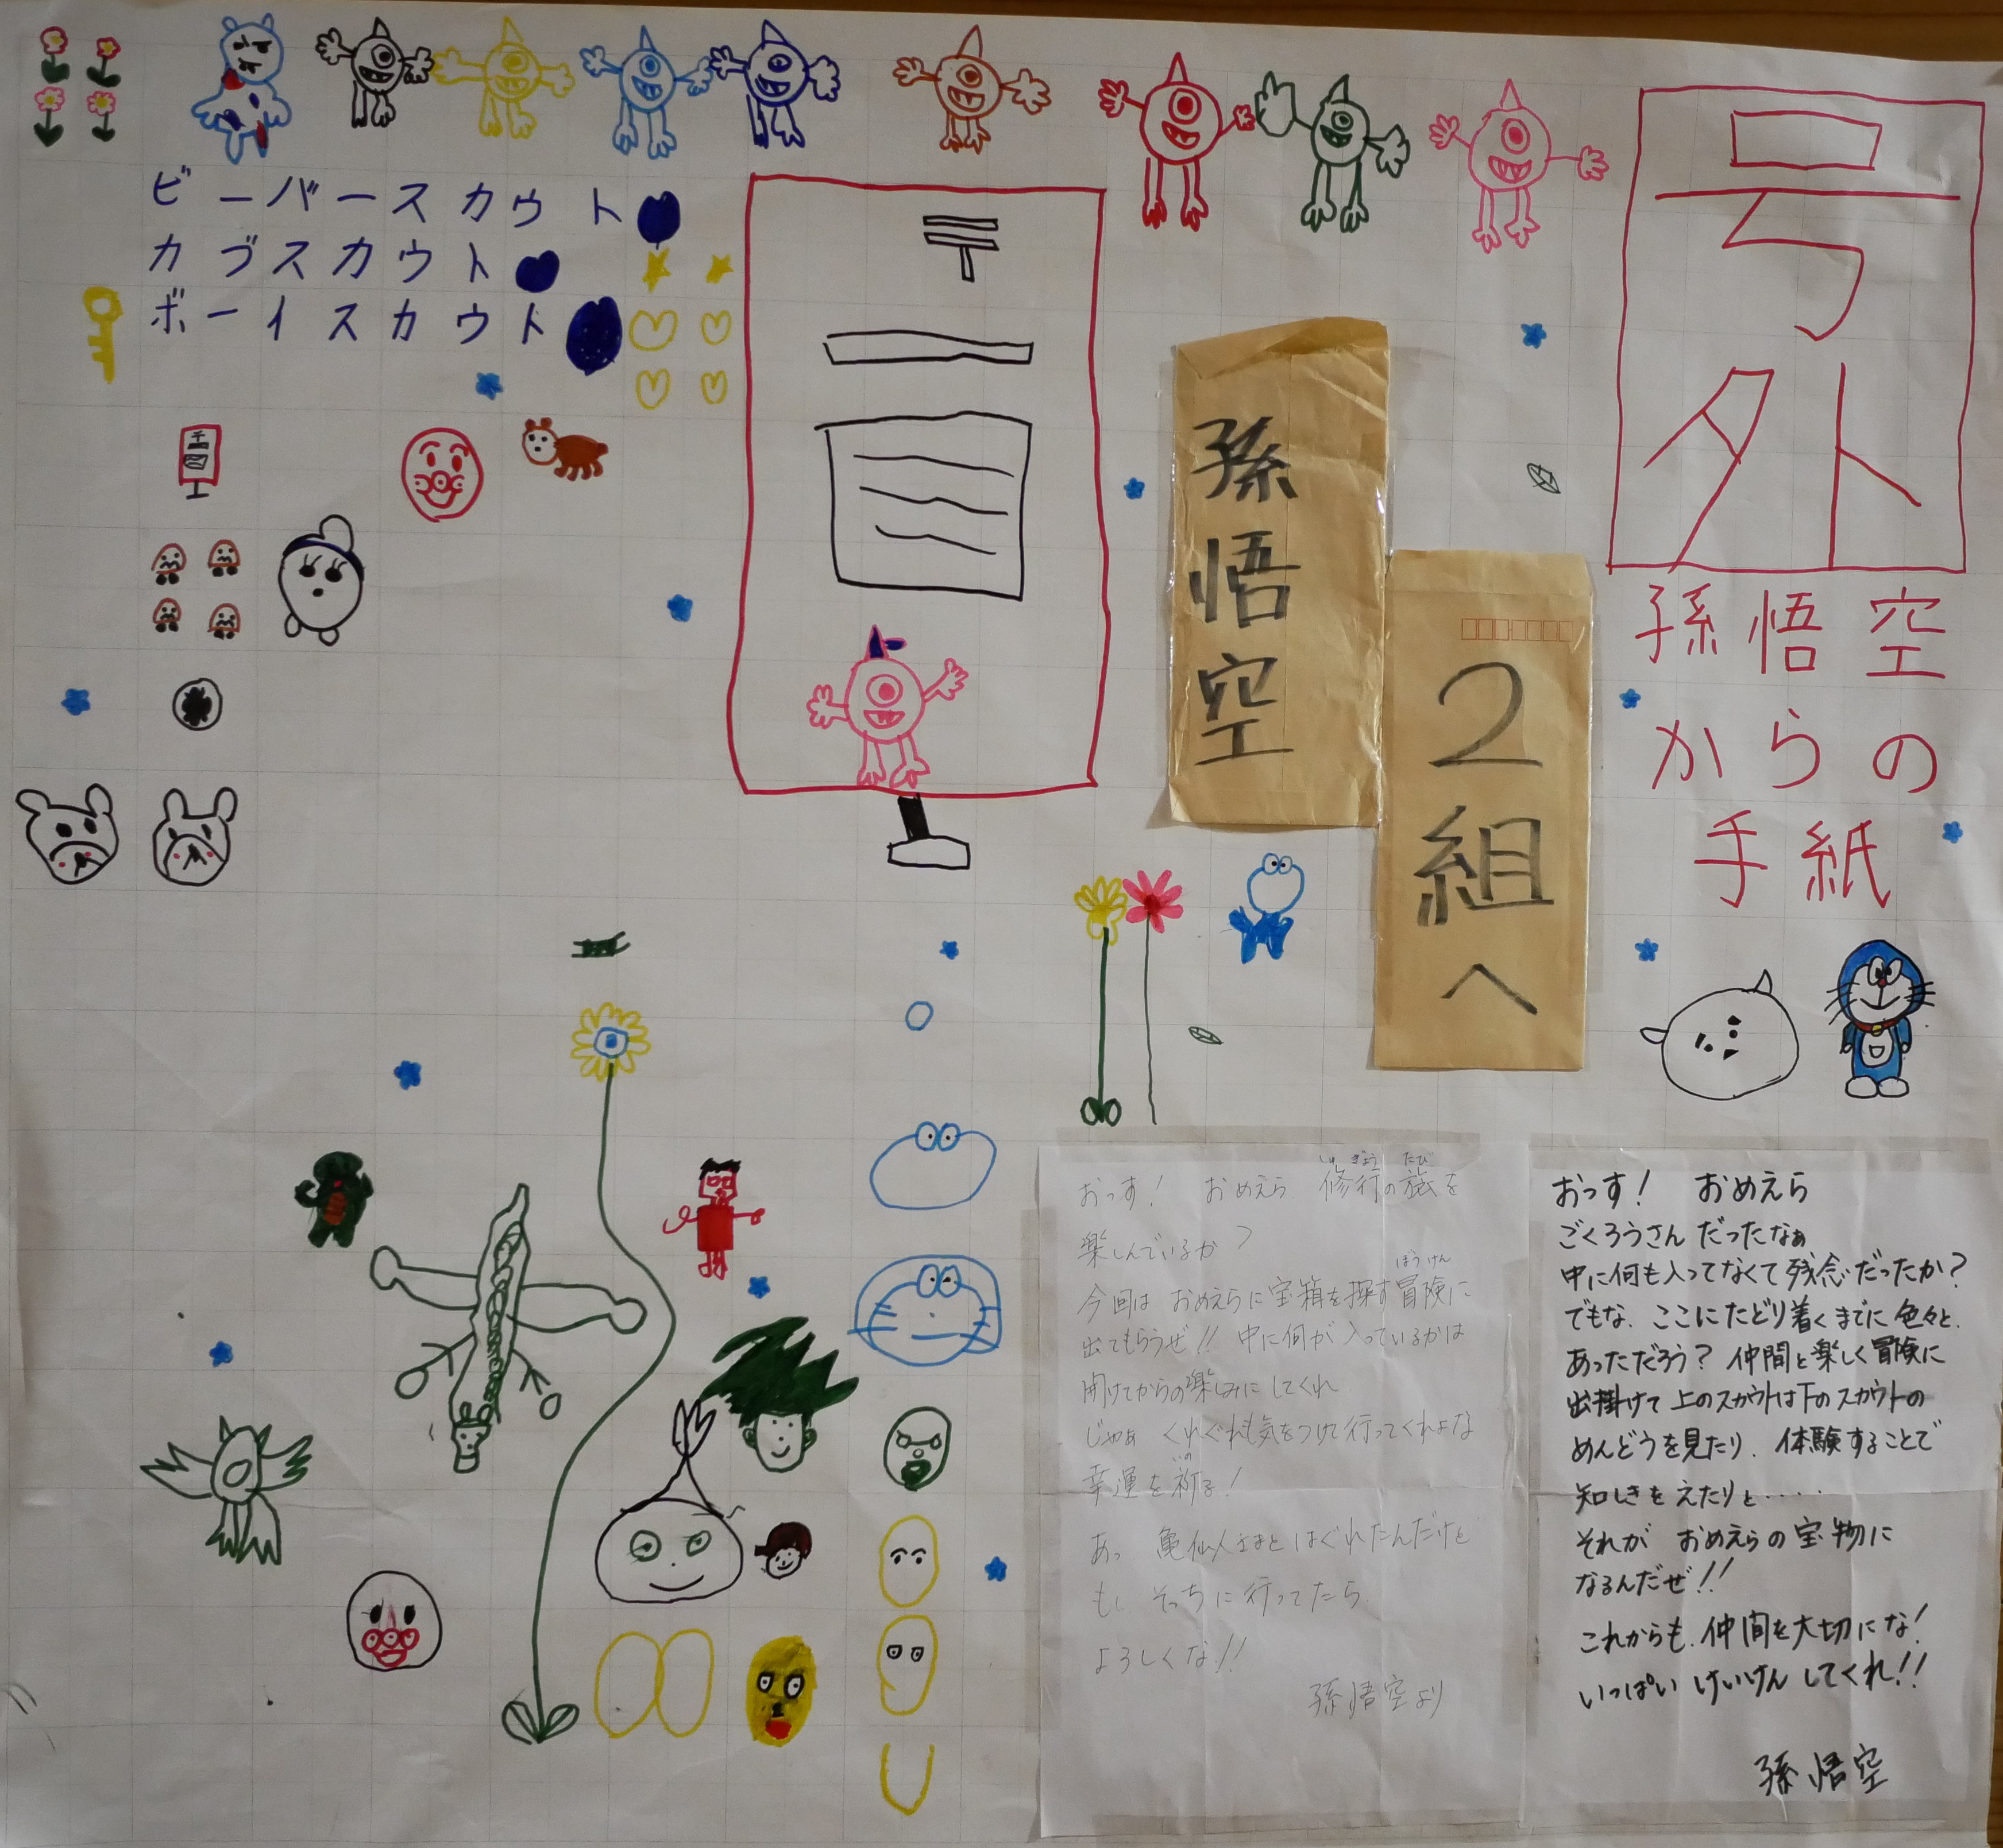 号外
孫悟空
からの
手紙
孫悟空
2組へ
〒
ビーバースカウト
カブスカウト
ボーイスカウト
おっす! おめえら 修行の旅を
しゅぎょう たび
楽しんでいるか?
今回は おめえらに宝箱を探す冒険に
ぼうけん
出てもらうぜ!! 中に何が入っているかは
開けてからの楽しみにしてくれ
じゃぁ くれぐれも気をつけて行ってくれよな
幸運を祈る!
いの
あっ 亀仙人さまとはぐれたんだけど
も、そっちに行ってたら
よろしくな!!
孫悟空より
おっす! おめえら
ごくろうさん だったなぁ
中に何も入ってなくて残念だったか?
でもな、ここにたどり着くまでに色々と
あっただろう? 仲間と楽しく冒険に
出掛けて 上のスカウトは下のスカウトの
めんどうを見たり、体験することで
知しきをえたりと・・・・・
それが おめえらの宝物に
なるんだぜ!!
これからも、仲間を大切にな!
いっぱい けいけん してくれ!!
孫悟空